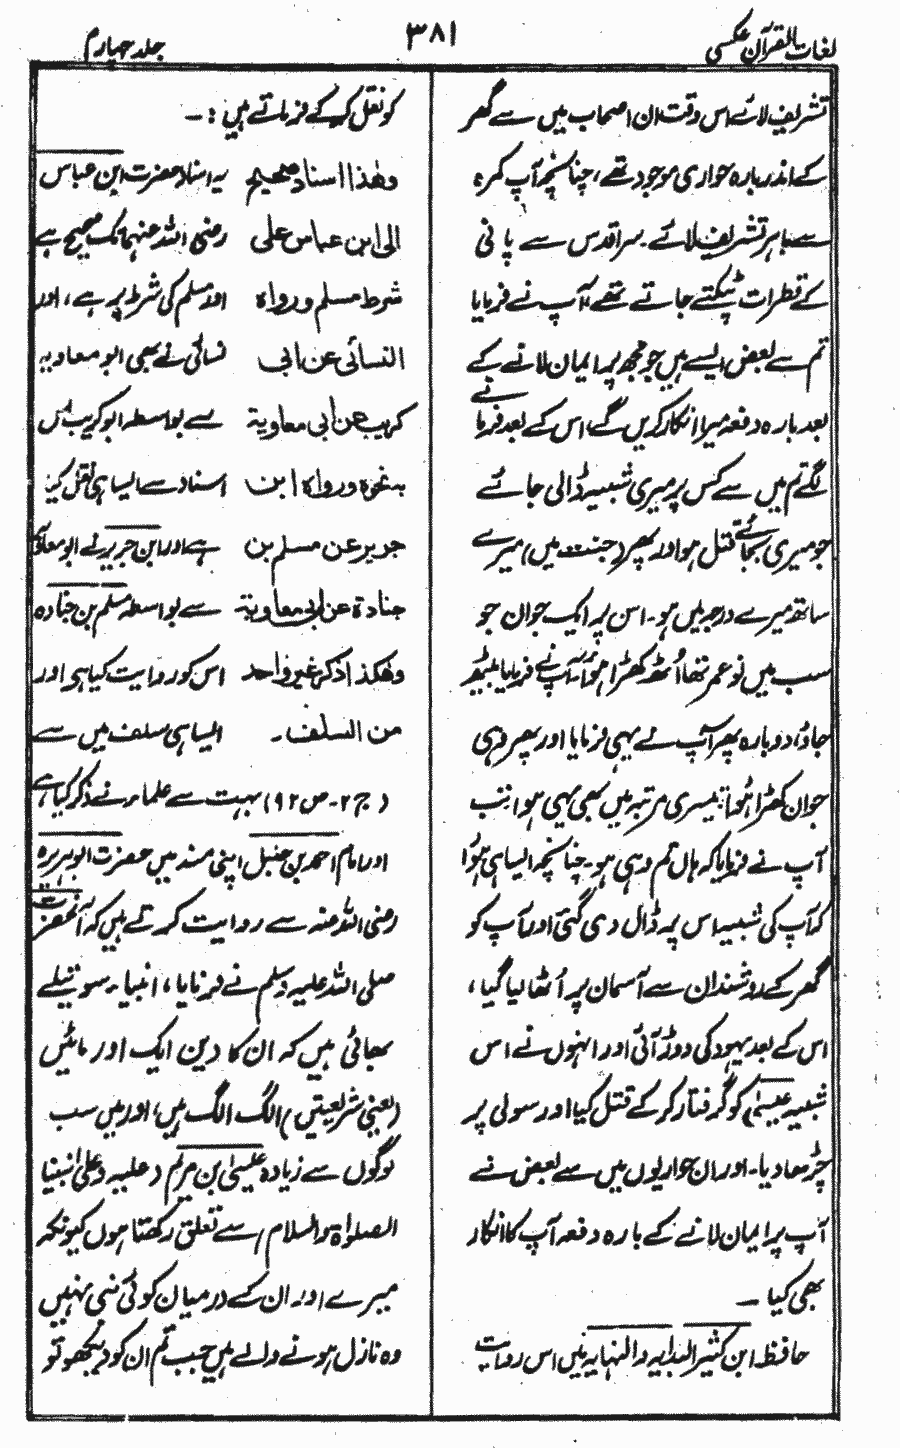 لغات القرآن عکسی
۳۸۱
جلد چہارم
تشریف لائے اس وقت ان اصحاب میں سے گھر
کے اندر بارہ حواری موجود تھے، چنانچہ آپ کمرہ
سے باہر تشریف لائے۔ سر اقدس سے پانی
کے قطرات ٹپکتے جاتے تھے، آپ نے فرمایا
تم سے بعض ایسے ہیں جو مجھ پر ایمان لانے کے
بعد بارہ دفعہ میرا انکار کریں گے، اس کے بعد فرمانے
لگے تم میں سے کس پر میری شبیہ ڈالی جائے
جو میری بجائے قتل ہو اور پھر (جنت میں) میرے
ساتھ میرے درجہ میں ہو۔ اس پر ایک جوان جو
سب میں نو عمر تھا اُٹھ کھڑا ہوا۔ آپ نے فرمایا بیٹھ
جاؤ، دوبارہ پھر آپ نے یہی فرمایا اور پھر وہی
جوان کھڑا ہوا تیسری مرتبہ میں بھی یہی ہوا تب
آپ نے فرمایا کہ ہاں تم وہی ہو۔ چنانچہ ایسا ہی ہوا
کہ آپ کی شبیہ اس پر ڈال دی گئی اور آپ کو
گھر کے روشندان سے آسمان پر اُٹھا لیا گیا،
اس کے بعد یہود کی دوڑ آئی اور انہوں نے اس
شبیہ عیسیٰ کو گرفتار کر کے قتل کیا اور سولی پر
چڑھا دیا۔ اور ان حواریوں میں سے بعض نے
آپ پر ایمان لانے کے بارہ دفعہ آپ کا انکار
بھی کیا۔
حافظ ابن کثیر البدایہ والنہایہ میں اس روایت
کو نقل کر کے فرماتے ہیں :۔
وهٰذا اسناد صحیح یہ اسناد حضرت ابن عباس
الی ابن عباس علی رضی اللہ عنہما تک صحیح ہے
شرط مسلم ورواه اور مسلم کی شرط پر ہے، اور
النسائی عن ابی نسائی نے بھی ابو معاویہ
کریب عن ابی معاویة سے بواسطہ ابو کریب اس
بنحوه ورواه ابن اسناد سے ایسا ہی نقل کیا
جریر عن مسلم بن ہے اور ابن جریر نے ابو معاویہ
جنادة عن ابی معاویة سے بواسطہ مسلم بن جنادہ
وهٰکذا ذکر غیر واحد اس کو روایت کیا ہے اور
من السلف۔ ایسا ہی سلف میں سے
(ج ۲۔ ص ۹۲) بہت سے علماء نے ذکر کیا ہے
اور امام احمد بن حنبل اپنی مسند میں حضرت ابوہریرہ
رضی اللہ عنہ سے روایت کرتے ہیں کہ آنحضرت
صلی اللہ علیہ وسلم نے فرمایا، انبیاء سوتیلے
بھائی ہیں کہ ان کا دین ایک اور مائیں
(یعنی شریعتیں) الگ الگ ہیں، اور میں سب
لوگوں سے زیادہ عیسیٰ بن مریم (علیہ وعلیٰ نبینا
الصلوٰة والسلام) سے تعلق رکھتا ہوں کیونکہ
میرے اور ان کے درمیان کوئی نبی نہیں
وہ نازل ہونے والے ہیں جب تم ان کو دیکھو تو